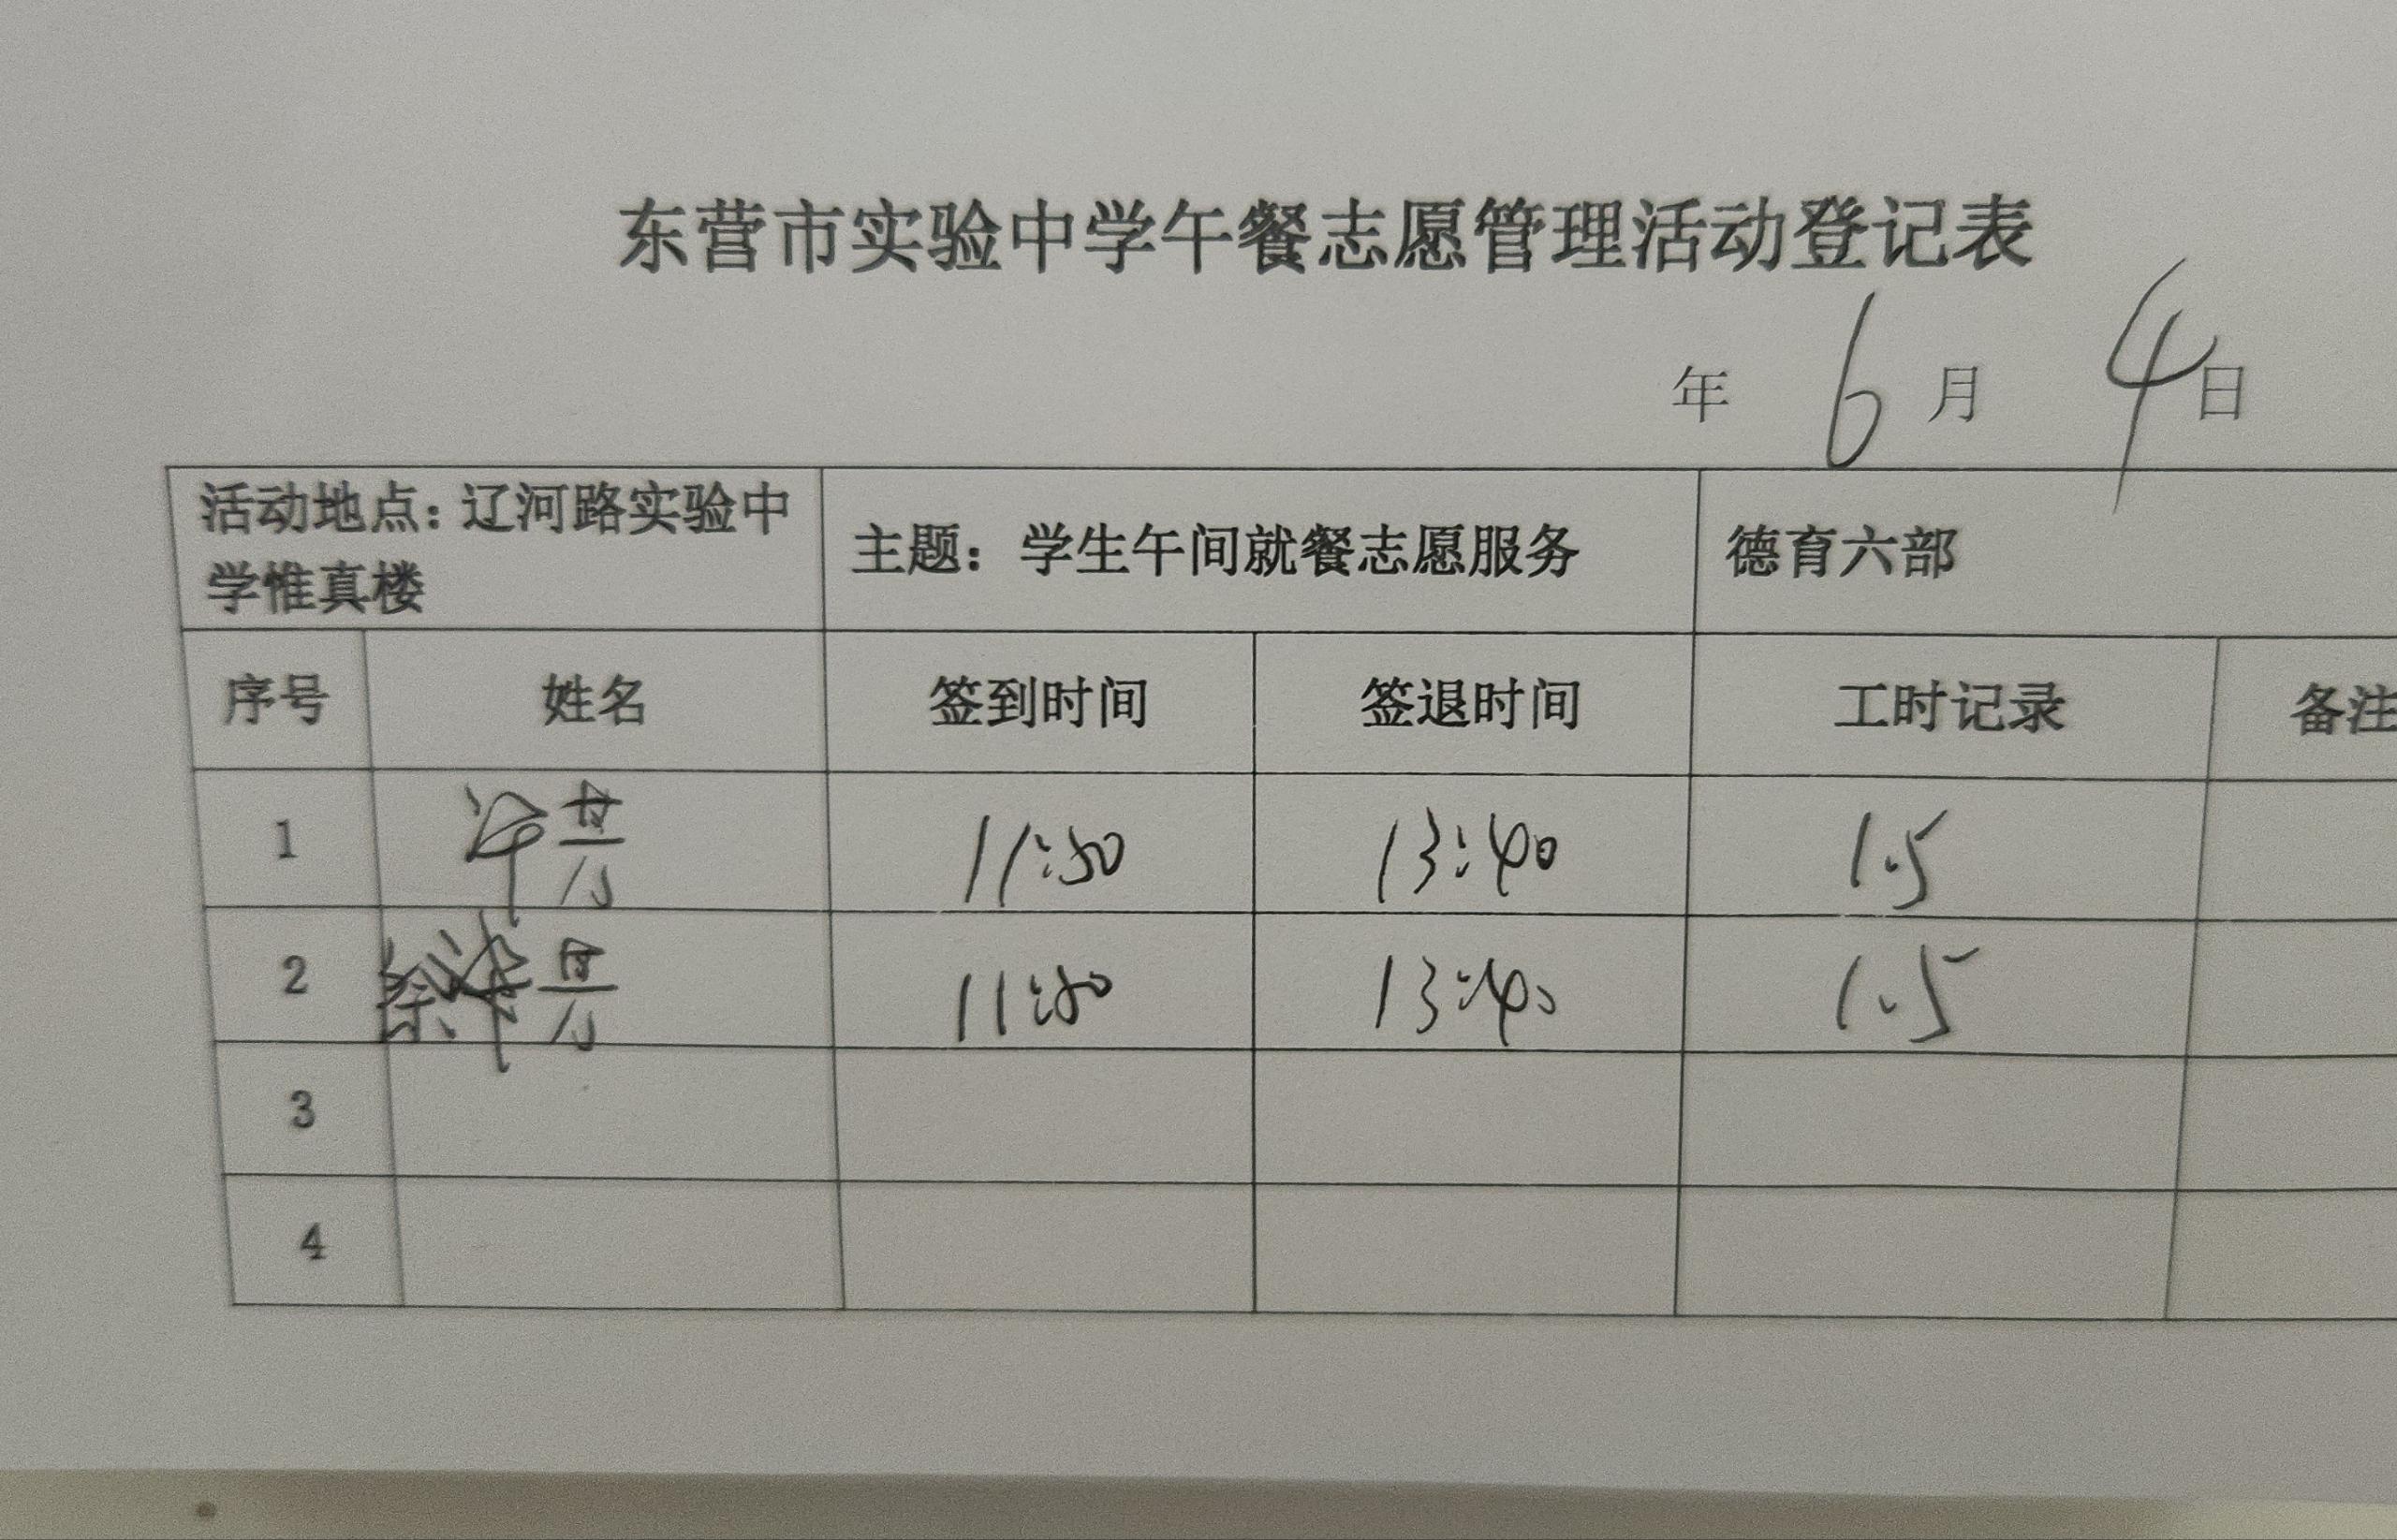 东营市实验中学午餐志愿管理活动登记表
年 6 月 4 日
活动地点：辽河路实验中
学惟真楼
主题：学生午间就餐志愿服务
德育六部
序号 姓名 签到时间 签退时间 工时记录 备注
1 11:50 13:40 1.5
2 11:50 13:40 1.5
3
4